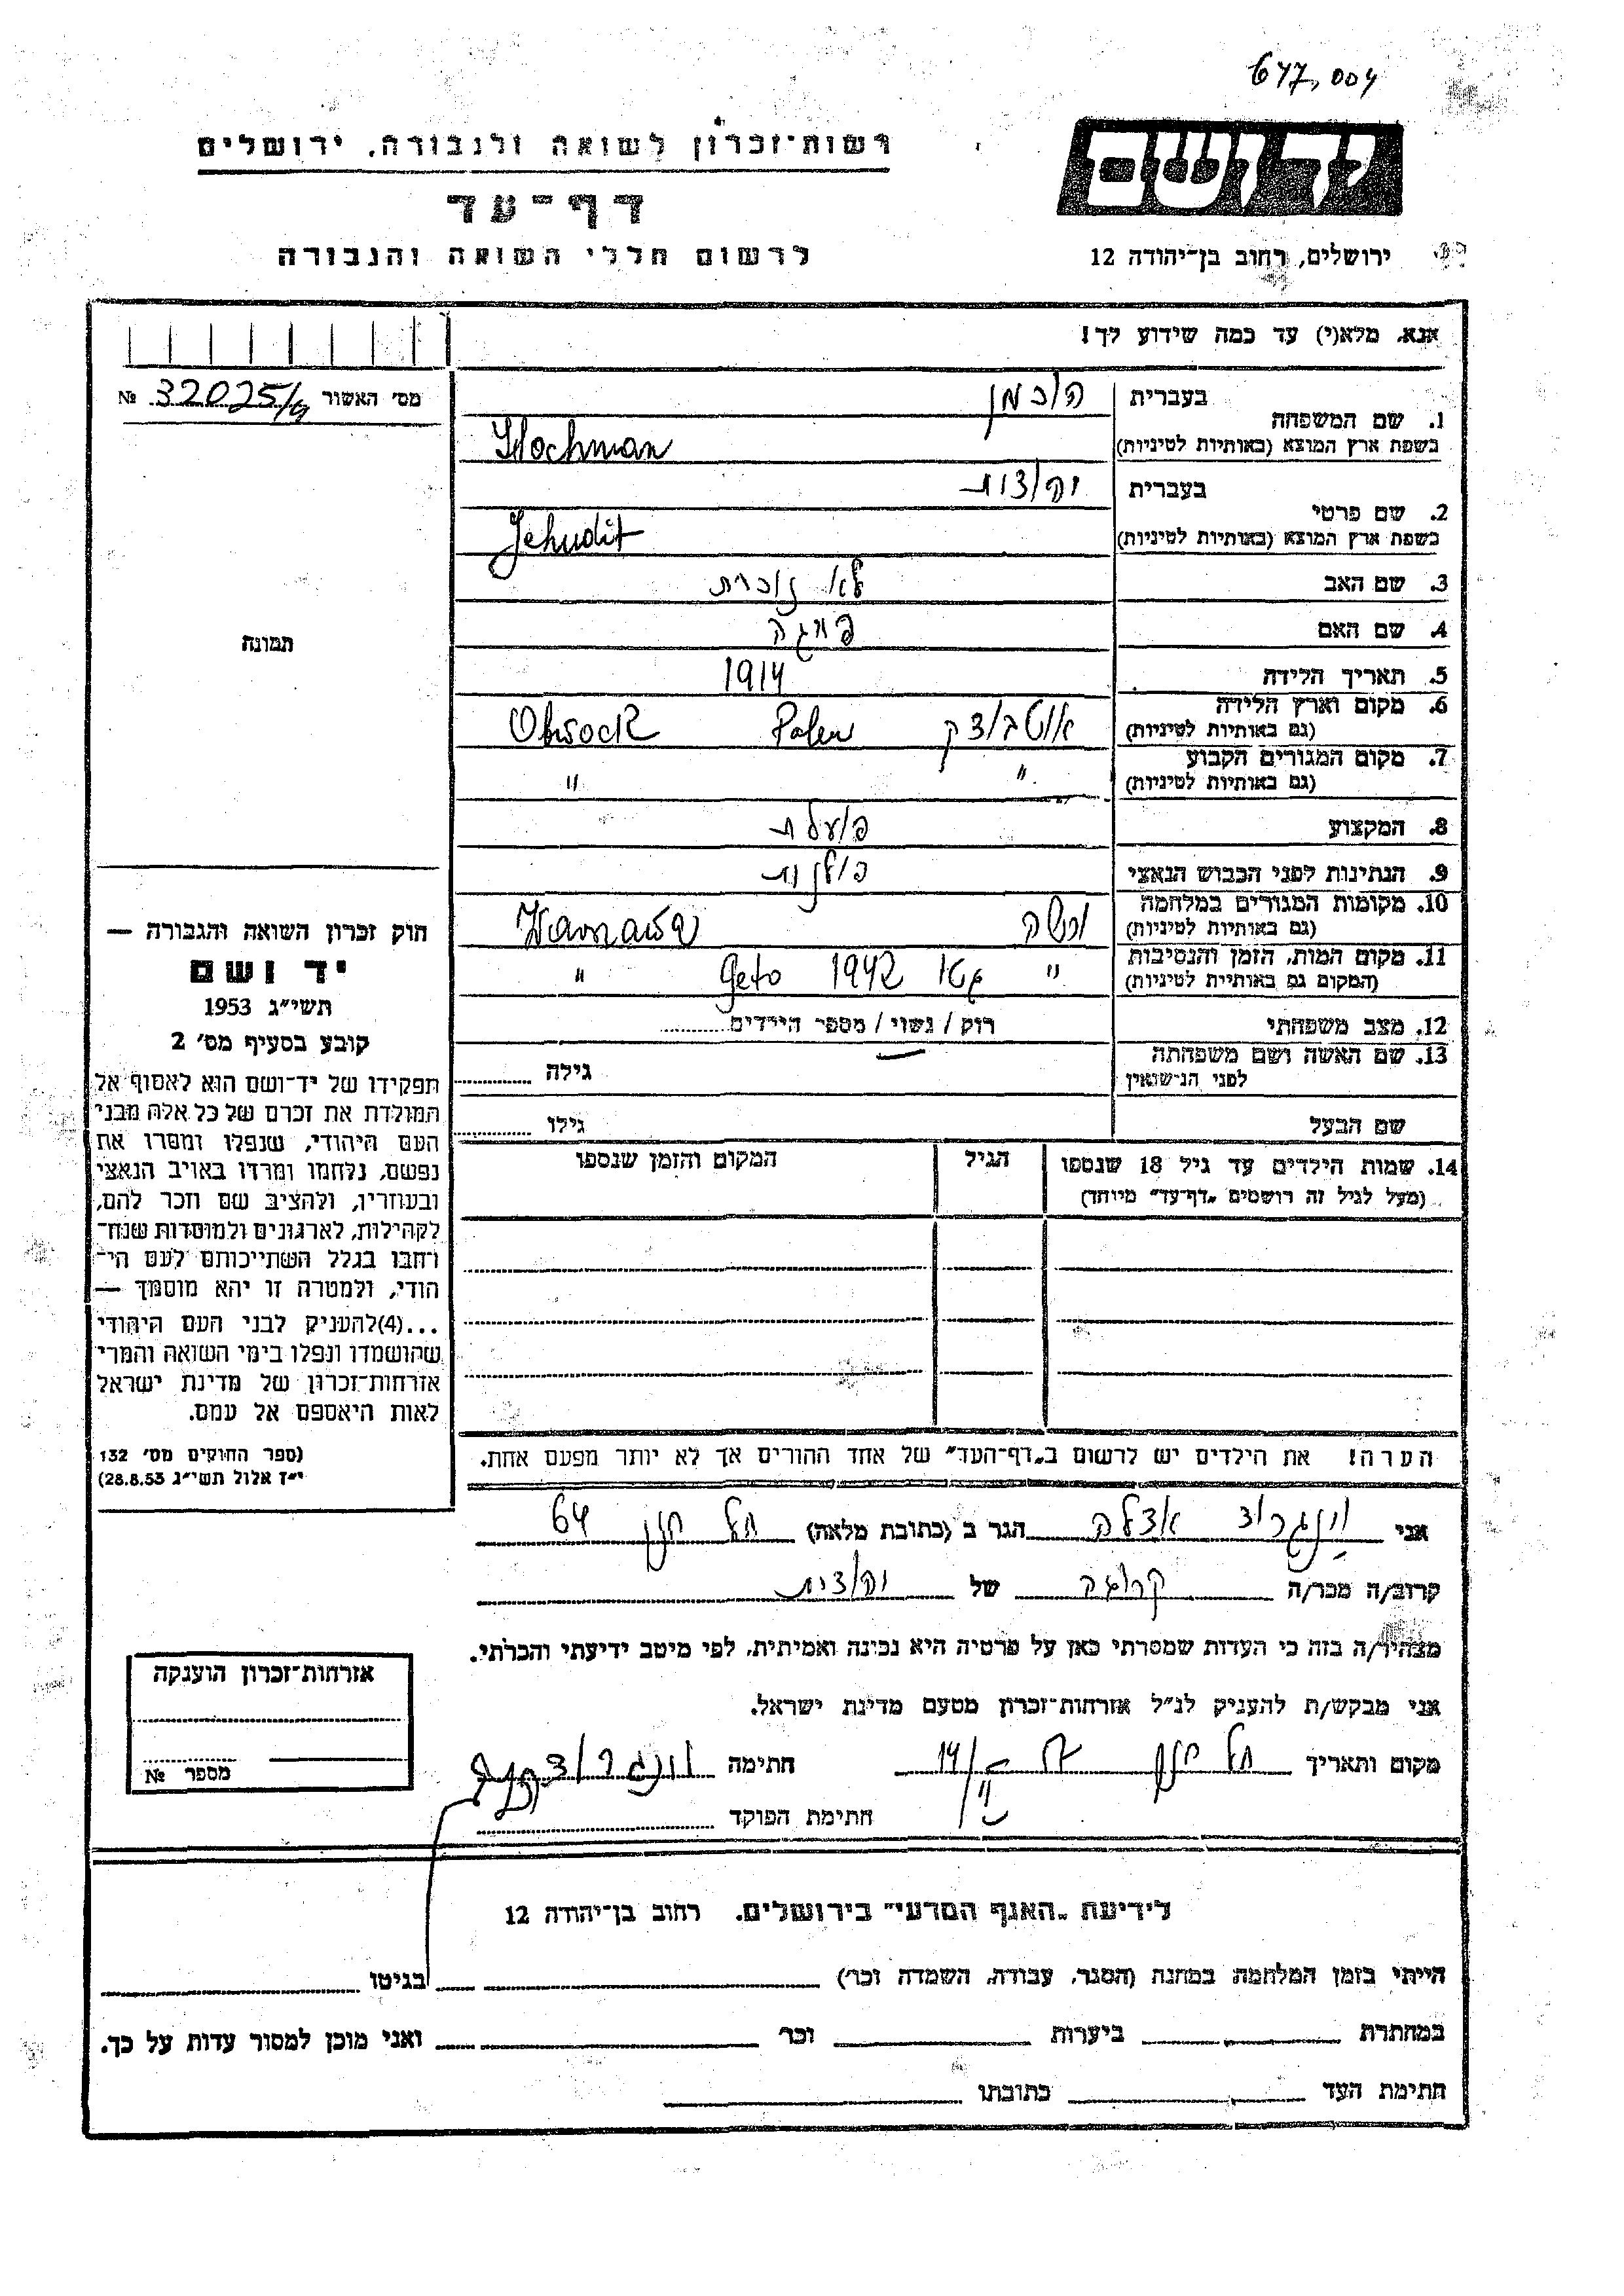 677,004
רשות־זכרון לשואה ולגבורה, ירושלים
יד ושם
דף־עד
לרשום חללי השואה והגבורה
ירושלים, רחוב בן־יהודה 12
אנא, מלא(י) עד כמה שידוע לך!
מס׳ האשור 32025/9 №
1. שם המשפחה
בעברית הוכמן
בשפת ארץ המוצא (באותיות לטיניות) Hochman
2. שם פרטי
בעברית יהודית
בשפת ארץ המוצא (באותיות לטיניות) Jehudit
3. שם האב לא נוכרת
4. שם האם פייגה
5. תאריך הלידה 1914
6. מקום וארץ הלידה אוטבוצק Polen Otwock
(גם באותיות לטיניות)
7. מקום המגורים הקבוע " "
(גם באותיות לטיניות)
8. המקצוע פועלת
9. הנתינות לפני הכבוש הנאצי פולנית
10. מקומות המגורים במלחמה ורשה Warszawa
(גם באותיות לטיניות)
11. מקום המות, הזמן והנסיבות " גטו 1942 Geto "
(המקום גם באותיות לטיניות)
12. מצב משפחתי רוק / נשוי / מספר הילדים
13. שם האשה ושם משפחתה
לפני הנישואין
גילה
שם הבעל גילו
14. שמות הילדים עד גיל 18 שנספו הגיל המקום והזמן שנספו
(מעל לגיל זה רושמים „דף־עד״ מיוחד)
הערה! את הילדים יש לרשום ב„דף־העד״ של אחד ההורים אך לא יותר מפעם אחת.
תמונה
חוק זכרון השואה והגבורה —
יד ושם
תשי״ג 1953
קובע בסעיף מס׳ 2
תפקידו של יד־ושם הוא לאסוף אל
המולדת את זכרם של כל אלה מבני
העם היהודי, שנפלו ומסרו את
נפשם, נלחמו ומרדו באויב הנאצי
ובעוזריו, ולהציב שם וזכר להם,
לקהילות, לארגונים ולמוסדות שנח־
רחבו בגלל השתייכותם לעם הי־
הודי, ולמטרה זו יהא מוסמך —
...(4)להעניק לבני העם היהודי
שהושמדו ונפלו בימי השואה והמרי
אזרחות־זכרון של מדינת ישראל
לאות היאספם אל עמם.
(ספר החוקים מס׳ 132
י״ז אלול תשי״ג 28.8.53)
אני וינגרוד אדלה הגר ב (כתובת מלאה) תל חנן 64
קרוב/ה מכר/ה קרובה של יהודית
מצהיר/ה בזה כי העדות שמסרתי כאן על פרטיה היא נכונה ואמיתית, לפי מיטב ידיעתי והכרתי.
אני מבקש/ת להעניק לנ״ל אזרחות־זכרון מטעם מדינת ישראל.
מקום ותאריך תל חנן חתימה
חתימת הפוקד
אזרחות־זכרון הוענקה
מספר №
לידיעת „האגף המדעי״ בירושלים, רחוב בן־יהודה 12
הייתי בזמן המלחמה במחנה (הסגר, עבודה, השמדה וכר׳) בגיטו
במחתרת ביערות וכר׳ ואני מוכן למסור עדות על כך.
חתימת העד כתובתו